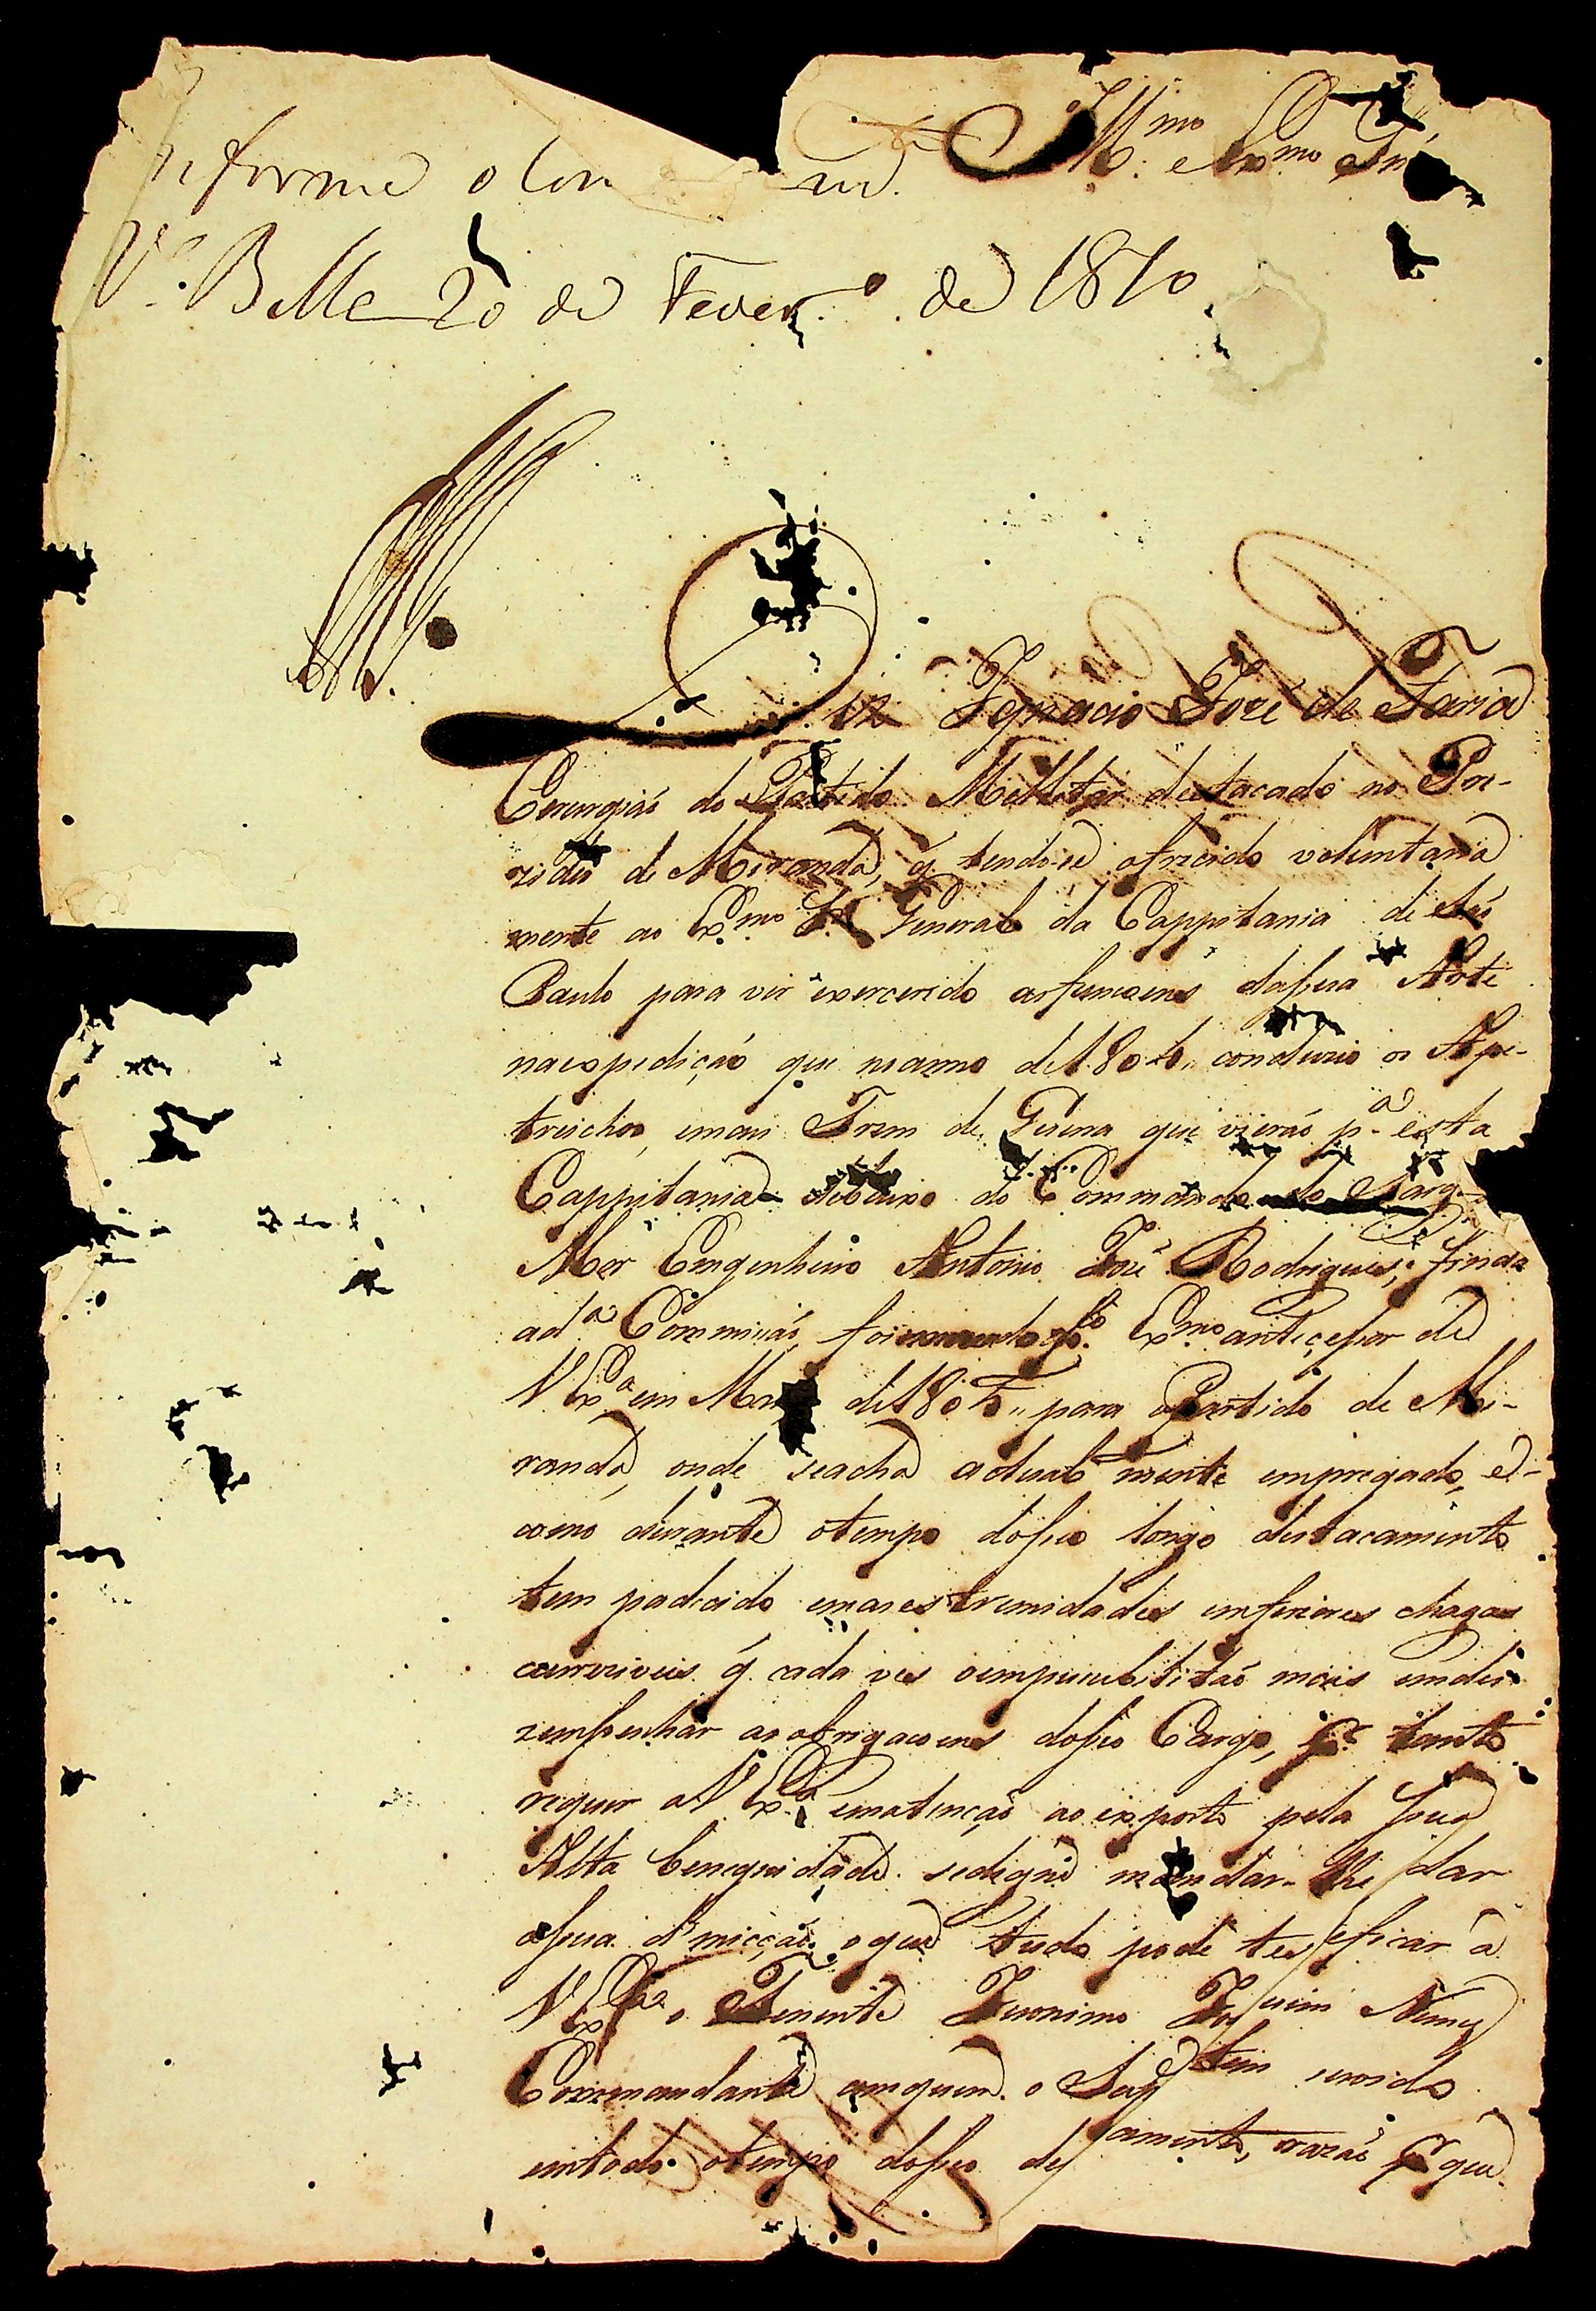 Ill.mo e Ex.mo Snr
Informe o Com
V.a Bella 20 de Fever.o de 1810.
Diz Ignacio José de Faria
Cerurgiaõ do Partido Mellitar destacado no Pre-
zidio de Miranda, q̃ tendo-se ofricido voluntaria
mente ao Ex.mo Sr General da Cappitania de Saõ
Paulo para vir exercerido as funsoens da sua Arte
na expedição que no anno de 1804,, conduzio os Ape-
treichos, e mais Trem de Guerra que vieraõ p.a esta
Cappitania debaixo do Commando do Sarg
Mor Emgenheiro Antonio José Rodrigues; finda
a d.a Commicaõ, foi p.lo Ex.mo anteçesor de
V Ex.a em de 1805,, para o Partido de Mi-
randa, onde se acha actual mente empregado, e-
como durante o tempo do seo longo destacamento
tem padecido em as estremidades inferiores chagas
q̃ cada ves o empucibilitaõ mais em des-
zempenhar as obrigacoens do seo Cargo, P.r tanto
requer a V Ex.a em atencaõ ao exposto pela sua
Alta beneguidade se digne mandar-lhe dar
a sua d'miccaõ, o que tudo pode tes eficar a
V Ex.a o Tenente Jeronimo Joa uim Nunes
Commandante com quem o Sup tem servido
em todo o tempo do seo des amento, razaõ P.r que